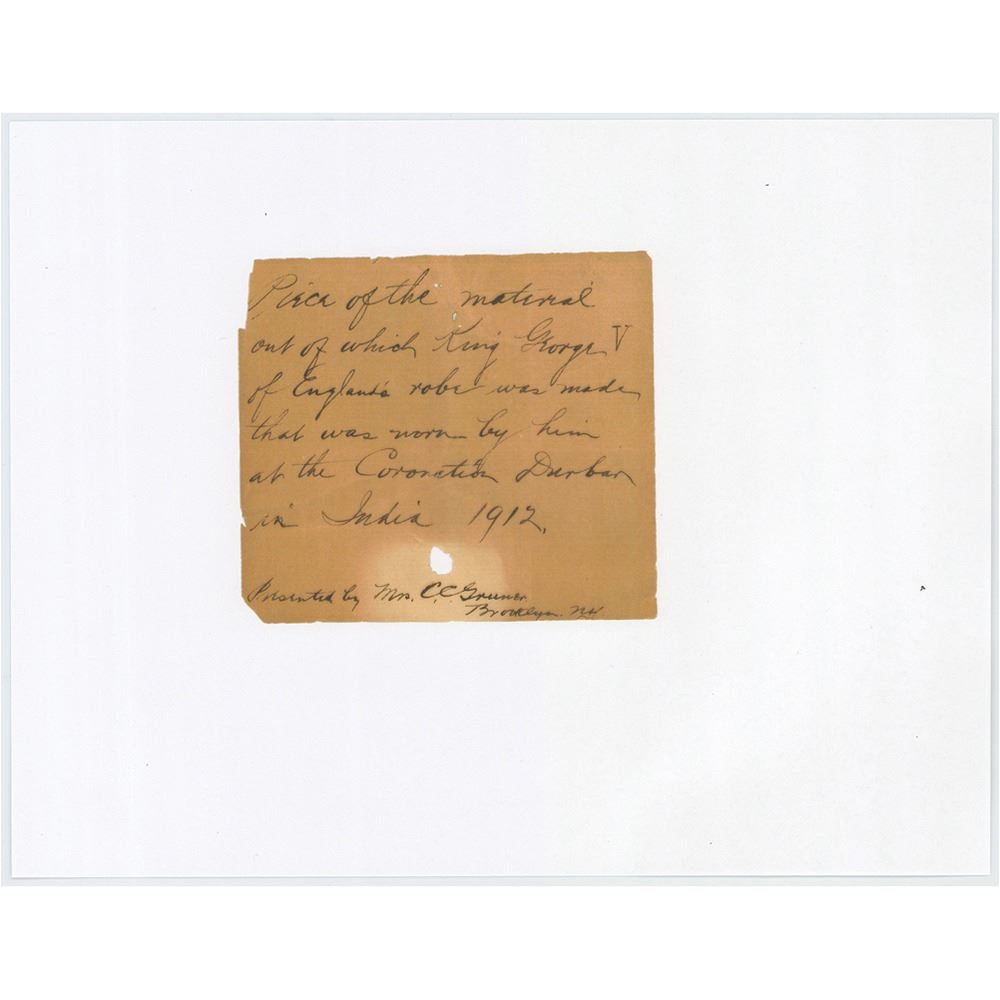 Piece of the material
out of which King George V
of England's robe was made
that was worn by him
at the Coronation Durbar
in India 1912.
Presented by Mrs. C.C. Gruner
Brooklyn. NY